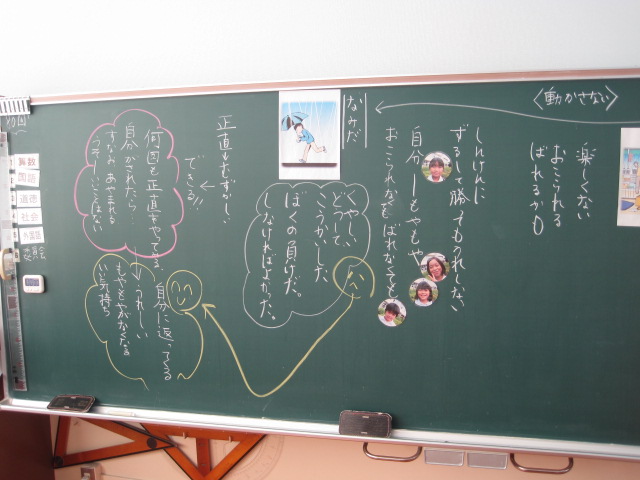 〈動かさない〉
楽しくない
おこられる
ばれるから
しんけんに
ずるして勝ってもうれしない
自分ーもやもや
おこられなくても ばれなくても
なみだ
くやしい、
どうして
こうかいした、
ぼくの負けだ。
しなければよかった。
正直→むずかしい
できる!!
何回も正直をやってる
自分がされたら…
すなおにあやまれる
自分に返ってくる
うれしい
もやもやがなくなる
いい気持ち
算数
国語
道徳
社会
外国語
委員会